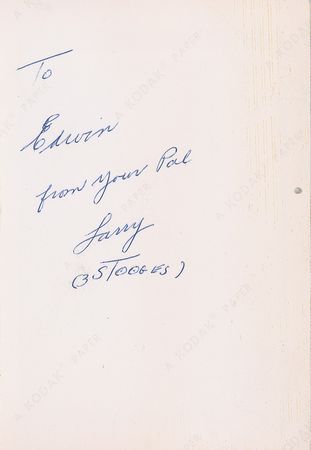 To
Edwin
from your Pal
Larry
(3 STOOGES)
A KODAK® PAPER
A KODAK® PAPER
A KODAK® PAPER
A KODAK® PAPER
A KODAK® PAPER